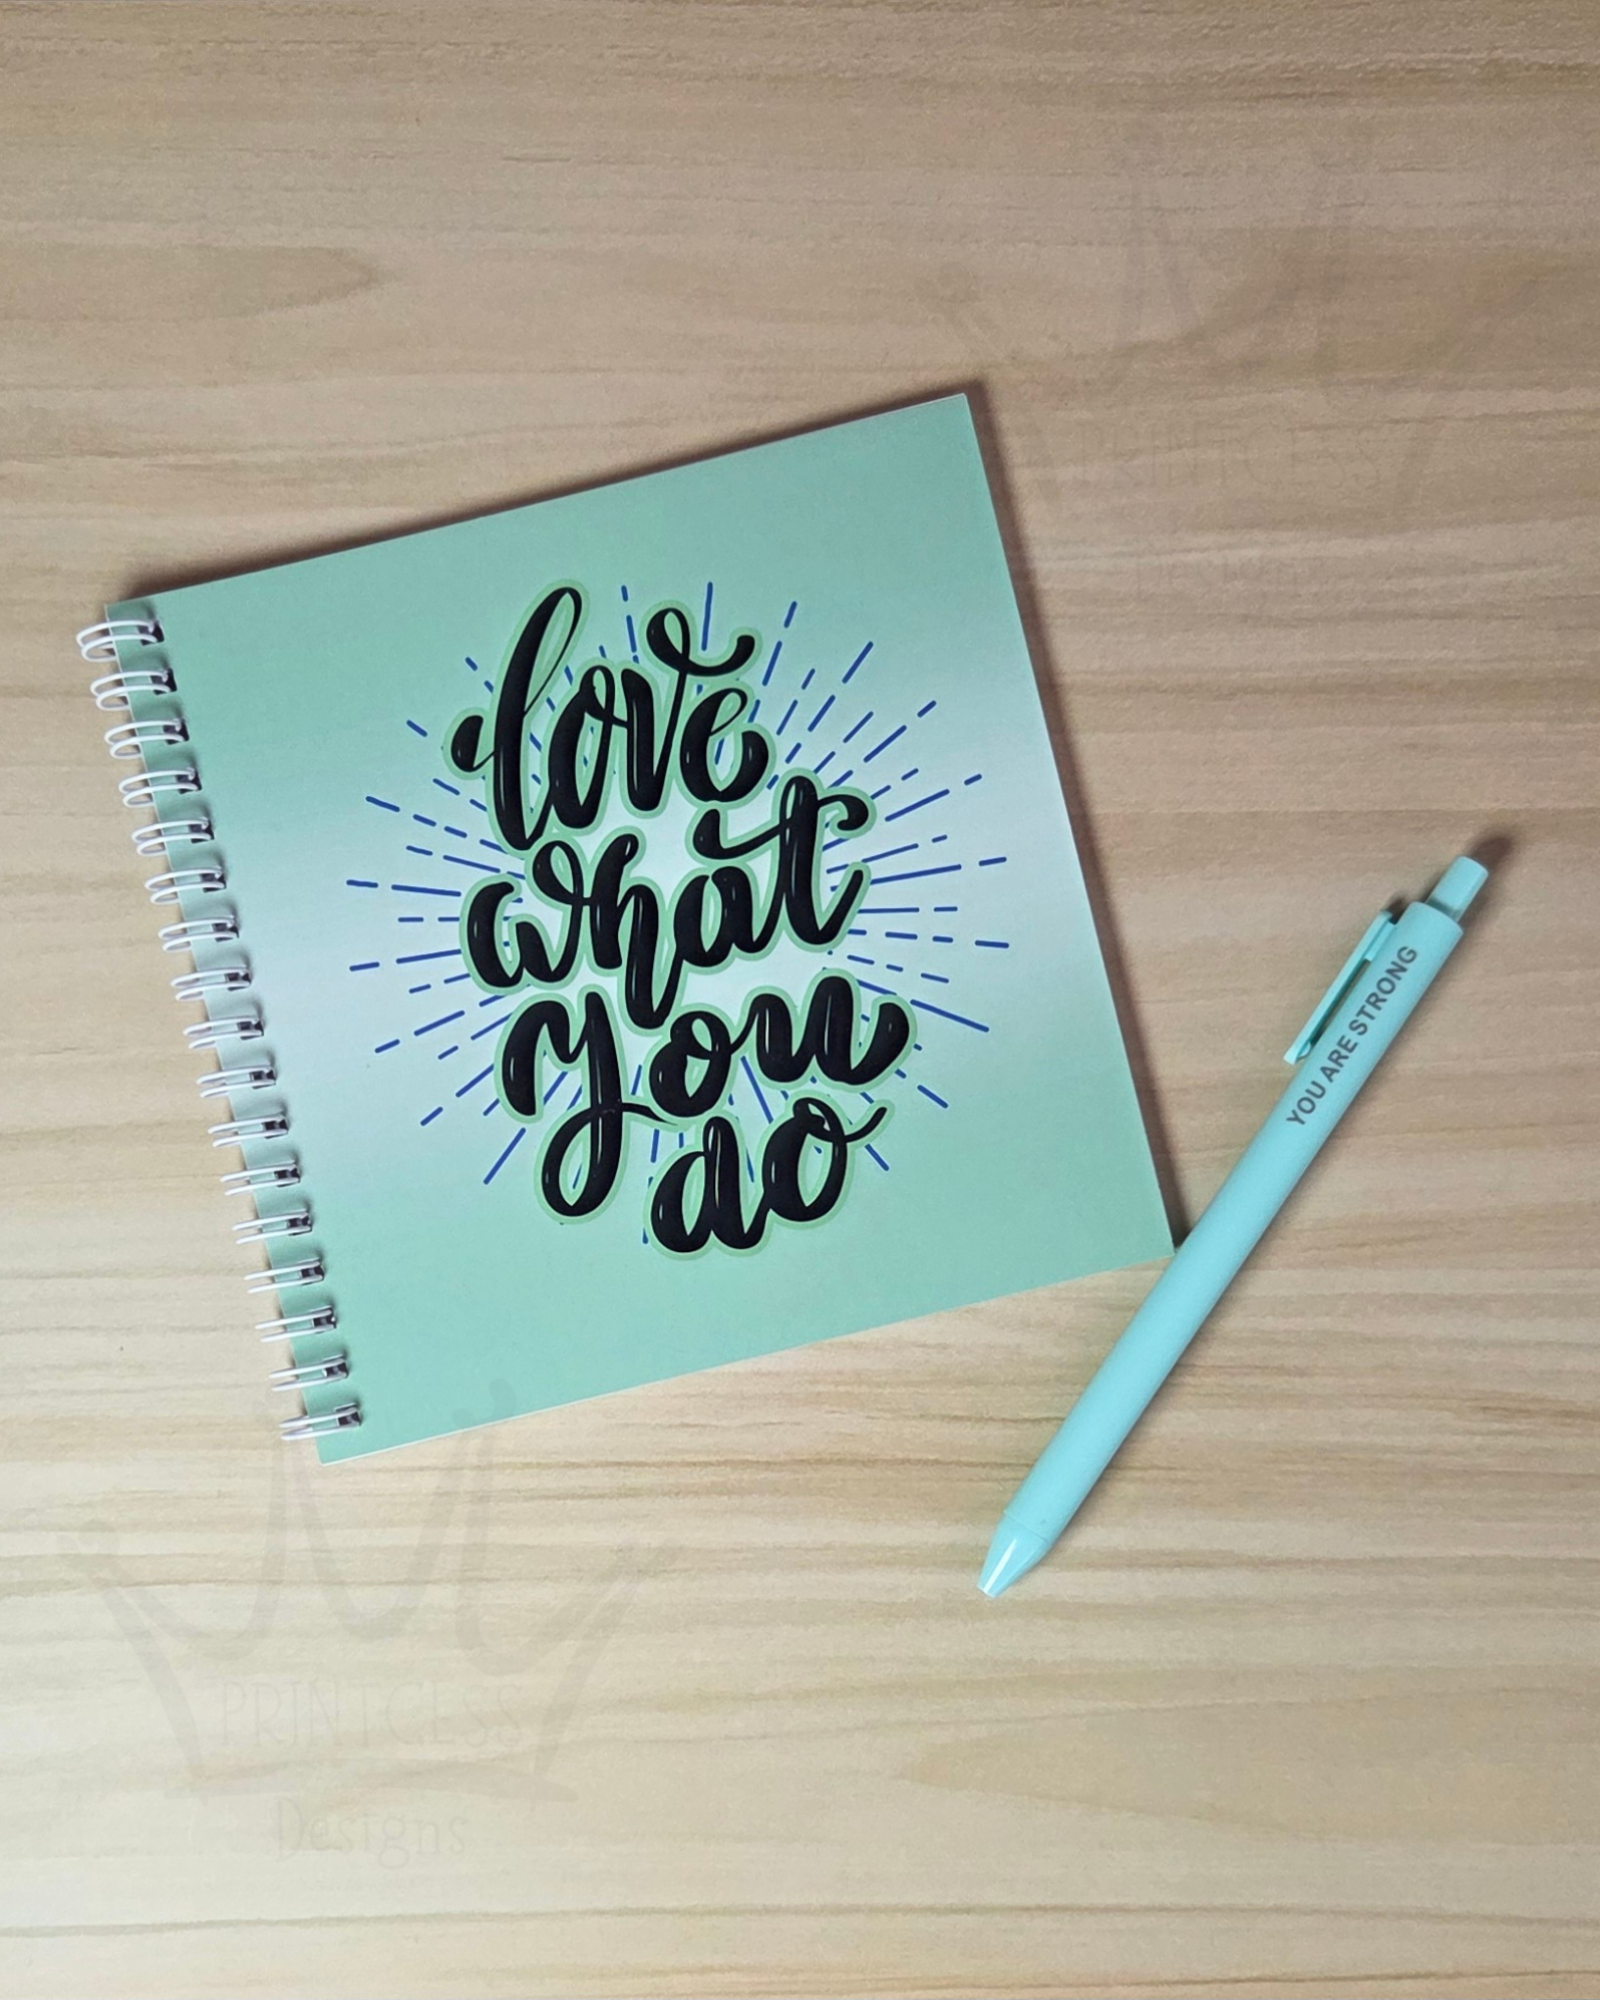 love
what
you
do
YOU ARE STRONG
PRINTCESS
Designs
PRINTCESS
Designs